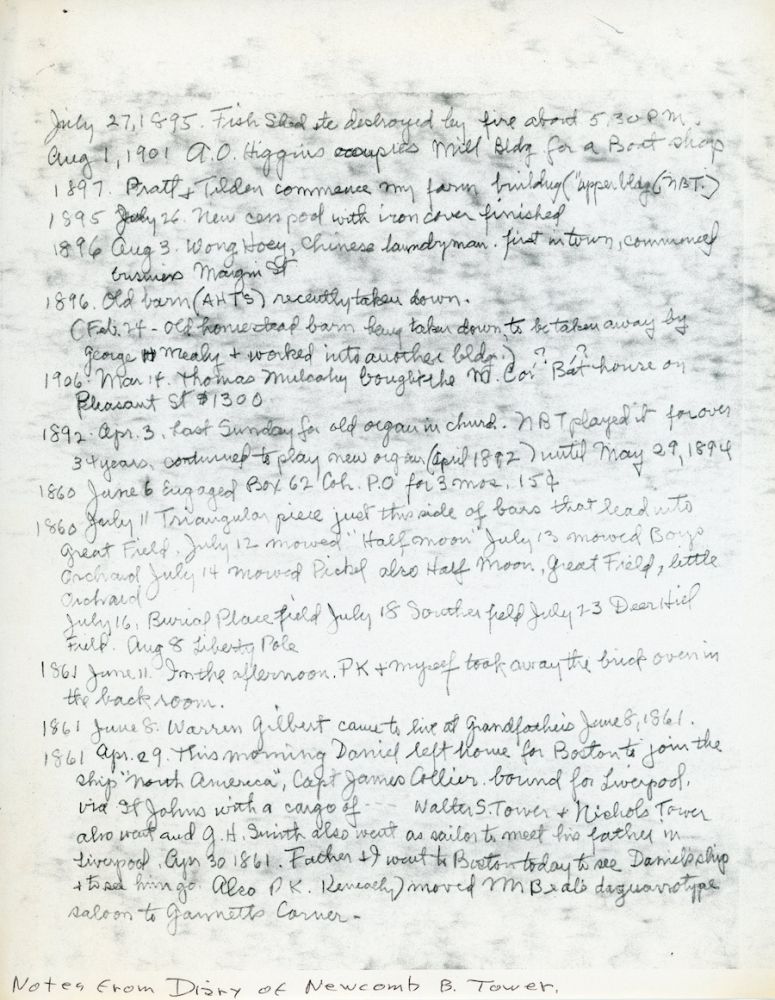 July 27, 1895. Fish Shed etc destroyed by fire about 5.30 P.M.
Aug 1, 1901 A.O. Higgins occupies Mill Bldg for a Boat shop
1897. Pratt & Tilden commence my farm building ("upper bldg (NBT.)
1895 July 26. New cess pool with iron cover finished
1896 Aug 3. Wong Hoey, Chinese laundryman. first in town, commenced
business Margin St
1896. Old barn (AHT's) recently taken down.
(Feb. 24 - Old homestead barn being taken down, to be taken away by
George Mealy & worked into another bldg.)
1906. Mar 14. Thomas Mulcahy bought the M. Cor ? Bat ? house on
Pleasant St $1300
1892. Apr. 3. Last Sunday for old organ in church. NBT played it for over
34 years. continued to play new organ (April 1892) until May 29, 1894
1860 June 6 Engaged Box 62 Coh. P.O for 3 mos. 15¢
1860 July 11 Triangular piece just this side of bars that lead into
Great Field. July 12 mowed "Half moon" July 13 mowed Boys
Orchard July 14 mowed Pickel also Half Moon, Great Field, little
Orchard
July 16, Burial Place field July 18 Souther field July 23 Deer Hill
Field. Aug 8 Liberty Pole
1861 June 11. In the afternoon. P K & myself took away the brick oven in
the back room.
1861 June 8. Warren Gilbert came to live at Grandfathers June 8, 1861.
1861 Apr. 29. This morning Daniel left home for Boston to join the
ship "North America", Capt James Collier. bound for Liverpool.
via St Johns with a cargo of --- Walter S. Tower & Nichols Tower
also went and G. H. Smith also went as sailor to meet his father in
Liverpool. Apr 30 1861. Father & I went to Boston today to see Daniel's ship
& to see him go. Also P. K. Keneachy) moved M M Beal's daguarrotype
saloon to Gannetts Corner -
Notes from Diary of Newcomb B. Tower.